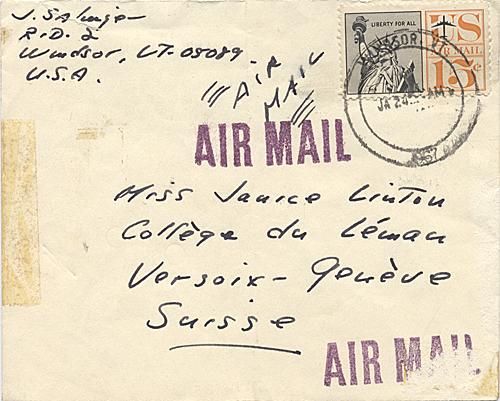 J. Salinger
R.D. 2
Windsor, VT. 05089.
U.S.A.
AIR
MAIL
LIBERTY FOR ALL
US
AIR MAIL
15¢
WINDSOR VT.
JA 24 AM
1967
AIR MAIL
Miss Janice Linton
Collège du Léman
Versoix - Genève
Suisse
AIR MAIL